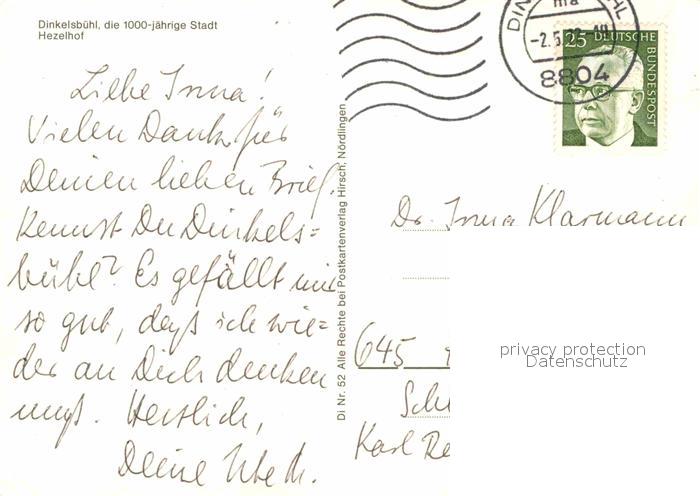 Dinkelsbühl, die 1000-jährige Stadt
Hezelhof
Liebe Irma!
Vielen Dank für
Deinen lieben Brief.
Kennst Du Dinkels=
bühl? Es gefällt mir
so gut, daß ich wie=
der an Dich denken
muß. Herzlich,
Deine
Di Nr. 52 Alle Rechte bei Postkartenverlag Hirsch, Nördlingen
-2.5.
8804
25 DEUTSCHE
BUNDESPOST
Dr. Irma Klarmann
645
Karl Re
privacy protection
Datenschutz